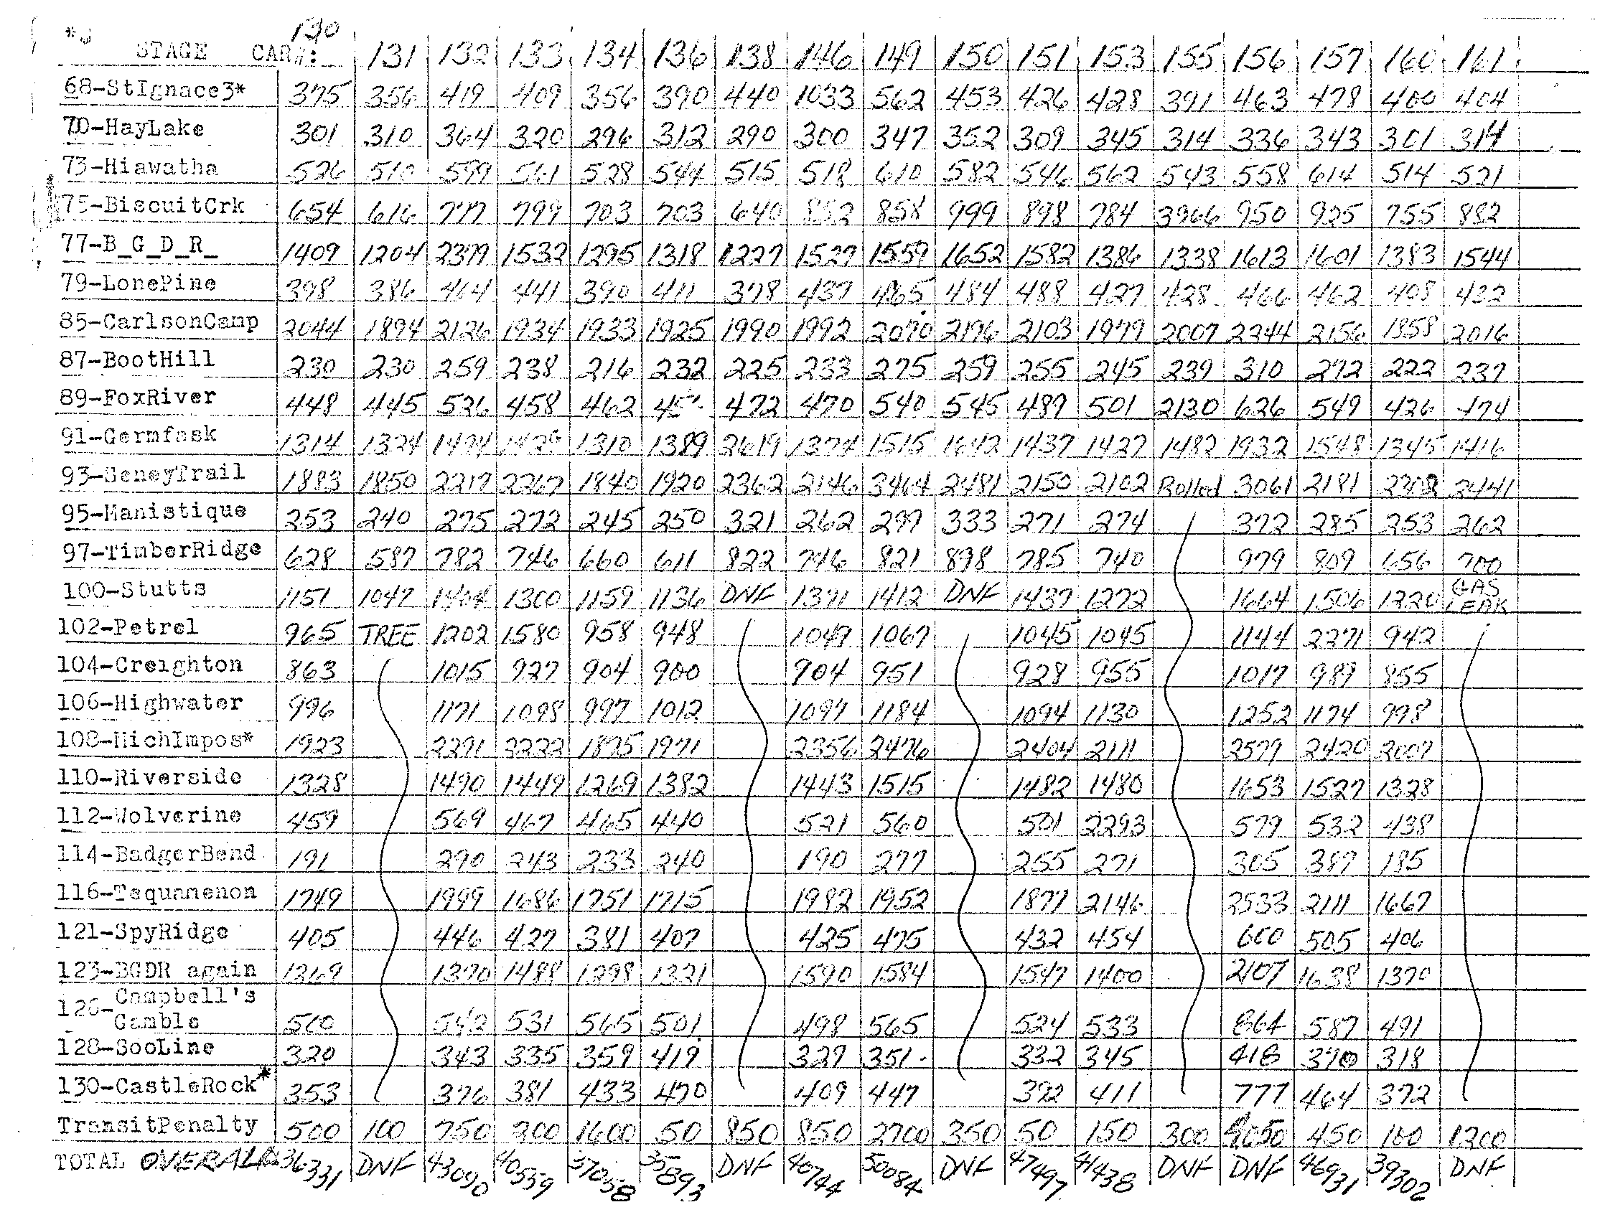 130
STAGE CAR#: 131 132 133 134 136 138 146 149 150 151 153 155 156 157 160 161
68-StIgnace3* 375 356 419 409 356 390 440 1033 562 453 426 428 391 463 478 400 404
70-HayLake 301 310 364 320 296 312 290 300 347 352 309 345 314 336 343 301 314
73-Hiawatha 526 510 599 561 528 544 515 518 610 582 546 562 543 558 614 514 521
75-BiscuitCrk 654 616 777 799 703 703 640 852 858 999 898 784 3966 950 925 755 882
77-B_G_D_R_ 1409 1204 2379 1532 1295 1318 1227 1527 1559 1652 1582 1386 1338 1613 1601 1383 1544
79-LonePine 398 386 464 441 390 411 378 437 465 484 488 427 428 466 462 408 432
85-CarlsonCamp 2044 1894 2126 1934 1933 1925 1990 1992 2070 2196 2103 1979 2007 2244 2156 1858 2016
87-BootHill 230 230 259 238 216 232 225 233 275 259 255 245 239 310 272 222 237
89-FoxRiver 448 445 526 458 462 472 470 540 545 489 501 2130 626 549 426 474
91-Germfask 1314 1324 1494 1426 1310 1389 2619 1374 1515 1642 1437 1427 1482 1932 1548 1345 1416
93-SeneyTrail 1883 1850 2217 2267 1840 1920 2362 2146 3464 2481 2150 2102 Rolled 3061 2181 2208 2441
95-Manistique 253 240 275 272 245 250 321 262 297 333 271 274 372 285 253 262
97-TimberRidge 628 587 782 746 660 611 822 746 821 898 785 740 979 809 656 700
100-Stutts 1151 1047 1404 1300 1159 1136 DNF 1391 1412 DNF 1437 1272 1664 1506 1220 GAS LEAK
102-Petrel 965 TREE 1202 1580 958 948 1049 1067 1045 1045 1144 2271 942
104-Creighton 863 1015 927 904 900 904 951 928 955 1017 989 855
106-Highwater 996 1171 1098 997 1012 1097 1184 1094 1130 1252 1174 998
108-MichImpos* 1923 2291 2222 1875 1971 2356 2476 2404 2111 2579 2420 2007
110-Riverside 1328 1490 1449 1269 1382 1443 1515 1482 1480 1653 1527 1328
112-Wolverine 459 569 467 465 440 521 560 501 2293 579 532 438
114-BadgerBend 191 290 243 233 240 190 277 255 271 305 387 185
116-Tsquamenon 1749 1999 1686 1751 1715 1982 1952 1877 2146 2533 2111 1667
121-SpyRidge 405 446 427 381 407 425 475 432 454 600 505 406
123-BGDR again 1269 1370 1488 1298 1321 1590 1584 1547 1400 2107 1638 1370
126-Campbell's
Gamble 500 542 531 565 501 498 565 524 533 864 587 491
128-SooLine 320 343 335 359 419 329 351 332 345 418 370 318
130-CastleRock* 353 376 381 433 470 409 447 392 411 777 464 372
TransitPenalty 500 100 750 200 1600 50 850 850 2700 350 50 150 300 9050 450 100 1200
TOTAL OVERALL 36331 DNF 43090 40539 37058 35893 DNF 40744 50084 DNF 47497 41438 DNF DNF 46931 39302 DNF